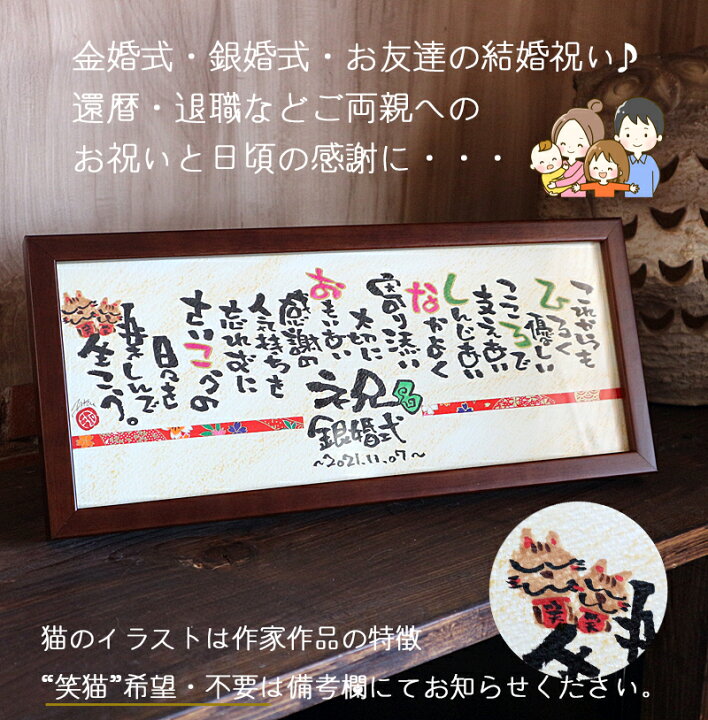 金婚式・銀婚式・お友達の結婚祝い♪
還暦・退職などご両親への
お祝いと日頃の感謝に・・・
これからいつも
ひろく
優しい
こころで
支えあい
しんじあい
なかよく
寄り添い
大切に
おもいあい
感謝の
気持ちを
忘れずに
さいこうの
日々を
しんで
生こう。
祝
銀婚式
~2021.11.07~
猫のイラストは作家作品の特徴
“笑猫”希望・不要は備考欄にてお知らせください。